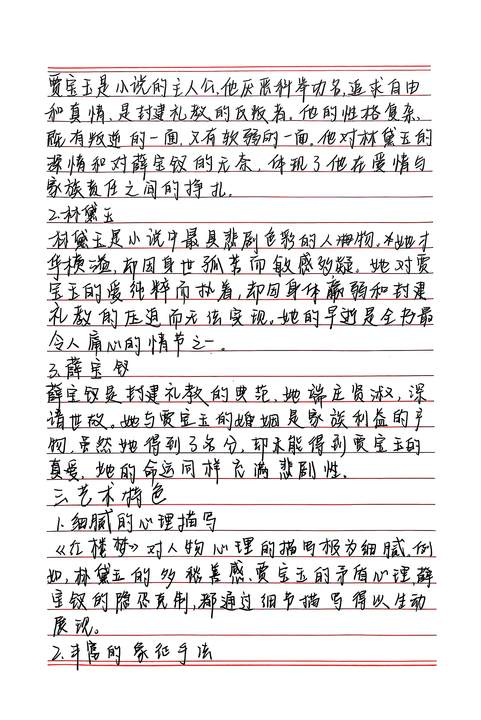 贾宝玉是小说的主人公,他厌恶科举功名,追求自由
和真情,是封建礼教的反叛者。他的性格复杂,
既有叛逆的一面,又有软弱的一面。他对林黛玉的
深情和对薛宝钗的无奈,体现了他在爱情与
家族责任之间的挣扎。
2.林黛玉
林黛玉是小说中最具悲剧色彩的人物。她才
华横溢,却因身世孤苦而敏感多疑。她对贾
宝玉的爱纯粹而执着,却因身体羸弱和封建
礼教的压迫而无法实现。她的早逝是全书最
令人痛心的情节之一。
3.薛宝钗
薛宝钗是封建礼教的典范,她端庄贤淑,深
谙世故。她与贾宝玉的婚姻是家族利益的产
物,虽然她得到了名分,却未能得到贾宝玉的
真爱,她的命运同样充满悲剧性。
三.艺术特色
1.细腻的心理描写
《红楼梦》对人物心理的描写极为细腻。例
如,林黛玉的多愁善感、贾宝玉的矛盾心理薛
宝钗的隐忍克制,都通过细节描写得以生动
展现。
2.丰富的象征手法